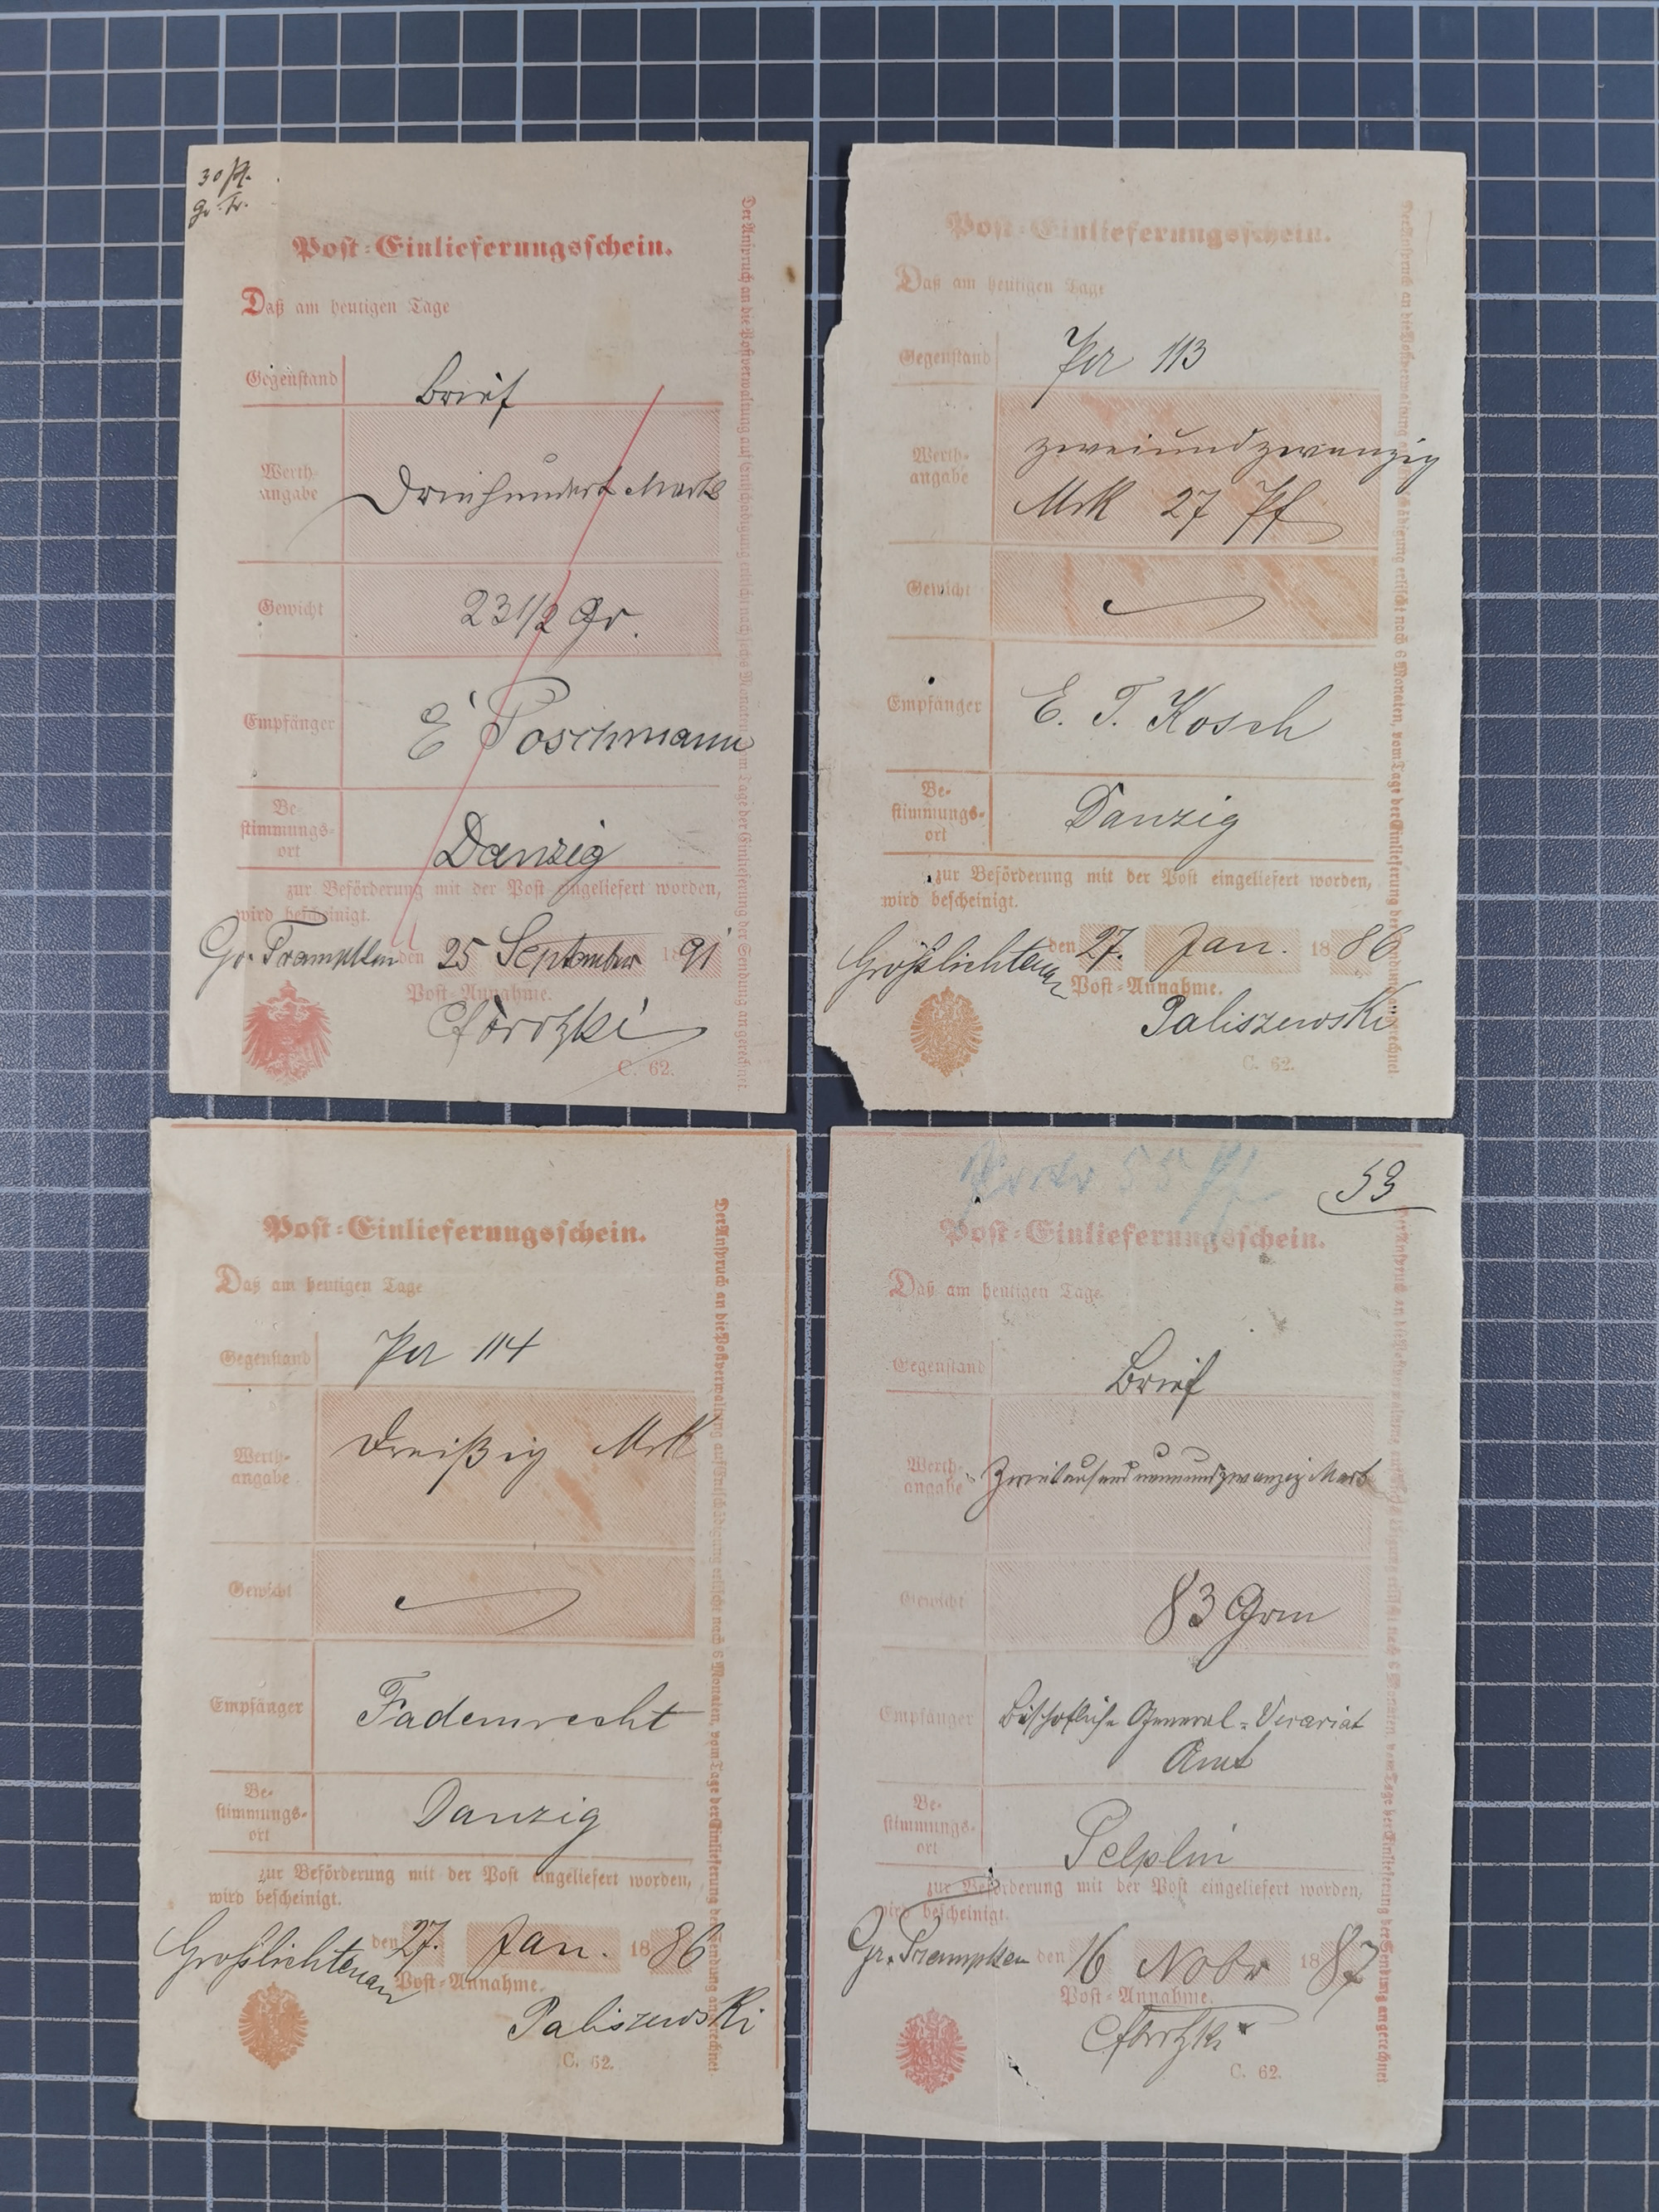 30 Pf.
Gr. Tr.
Post-Einlieferungsschein.
Daß am heutigen Tage
Gegenstand Brief
Werth-
angabe Dreihundert Mark
Gewicht 23 1/2 Gr.
Empfänger E Poschmann
Be-
stimmungs-
ort Danzig
zur Beförderung mit der Post eingeliefert worden,
wird bescheinigt.
Gr. Trampken den 25 September 1891
Post-Annahme.
C. 62.
Der Anspruch an die Postverwaltung auf Entschädigung erlischt nach sechs Monaten, vom Tage der Einlieferung der Sendung an gerechnet.
Post-Einlieferungsschein.
Daß am heutigen Tage
Gegenstand 113
Werth-
angabe zweiundzwanzig
Mrk 27 Pf
Gewicht
Empfänger E. T. Kosch
Be-
stimmungs-
ort Danzig
zur Beförderung mit der Post eingeliefert worden,
wird bescheinigt.
Großlichtenau den 27. Jan. 1886
Post-Annahme.
Paliszewski
C. 62.
Der Anspruch an die Postverwaltung auf Entschädigung erlischt nach 6 Monaten, vom Tage der Einlieferung der Sendung an gerechnet
Post-Einlieferungsschein.
Daß am heutigen Tage
Gegenstand 114
Werth-
angabe Dreißig Mrk
Gewicht
Empfänger Fadenrecht
Be-
stimmungs-
ort Danzig
zur Beförderung mit der Post eingeliefert worden,
wird bescheinigt.
Großlichtenau den 27. Jan. 1886
Post-Annahme.
Paliszewski
C. 62.
Der Anspruch an die Postverwaltung auf Entschädigung erlischt nach 6 Monaten, vom Tage der Einlieferung der Sendung an gerechnet
Porto 55 Pf
53
Post-Einlieferungsschein.
Daß am heutigen Tage
Gegenstand Brief
Werth-
angabe Zweitausendneunundzwanzig Mark
Gewicht 83 Grm
Empfänger Bischöfliche General-Vicariat
Amt
Be-
stimmungs-
ort Pelplin
zur Beförderung mit der Post eingeliefert worden,
wird bescheinigt.
Gr. Trampken den 16 Nobr 1887
Post-Annahme.
C. 62.
Der Anspruch an die Postverwaltung auf Entschädigung erlischt nach 6 Monaten, vom Tage der Einlieferung der Sendung an gerechnet